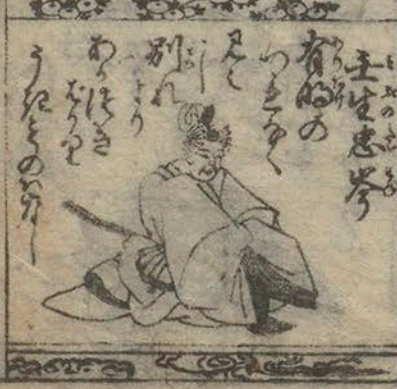 壬生忠岑
有明の
つれなく
見え
し
別れ
より
あかつき
ばかり
うきものはなし